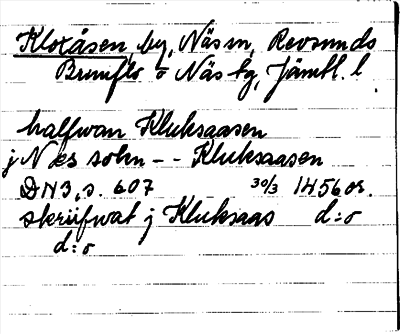 Kloxåsen, by, Näs sn, Revsunds
Brunflo o Näs tg, Jämtl. l.
halffwan Kluksaasen
j Næs sokn -- Kluksaasen
DN3, s. 607 30/3 1456 or.
skriifwat j Kluksaas d:o
d:o